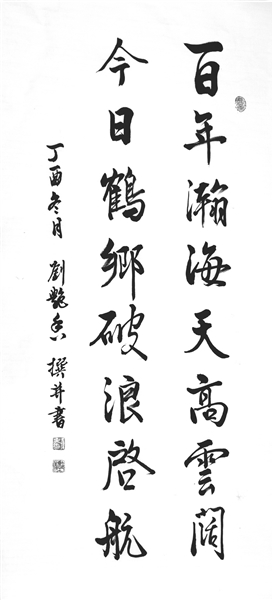 百年瀚海天高雲闊
今日鶴鄉破浪啓航
丁酉冬月 劉艷香 撰并書